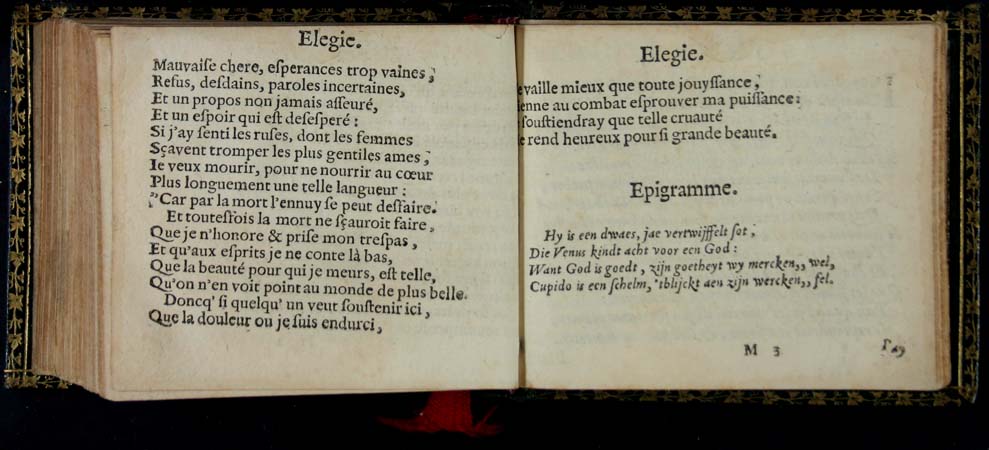 Elegie.
Mauvaiſe chere, eſperances trop vaines,
Refus, deſdains, paroles incertaines,
Et un propos non jamais aſſeuré,
Et un eſpoir qui eſt deſeſperé:
Si j'ay ſenti les ruſes, dont les femmes
Sçavent tromper les plus gentiles ames,
Ie veux mourir, pour ne nourrir au cœur
Plus longuement une telle langueur:
"Car par la mort l'ennuy ſe peut deffaire.
Et toutesfois la mort ne ſçauroit faire,
Que je n'honore & priſe mon treſpas,
Et qu'aux eſprits je ne conte là bas,
Que la beauté pour qui je meurs, eſt telle,
Qu'on n'en voit point au monde de plus belle.
Doncq' ſi quelqu' un veut ſouſtenir ici,
Que la douleur ou je ſuis endurci,
Elegie.
vaille mieux que toute jouyſſance,
enne au combat eſprouver ma puiſſance:
ſouſtiendray que telle cruauté
e rend heureux pour ſi grande beauté.
Epigramme.
Hy is een dwaes, jae vertwijffelt ſot,
Die Venus kindt acht voor een God:
Want God is goedt, zijn goetheyt wy mercken,, wel,
Cupido is een ſchelm, 'tblijckt aen zijn wercken,, fel.
M 3